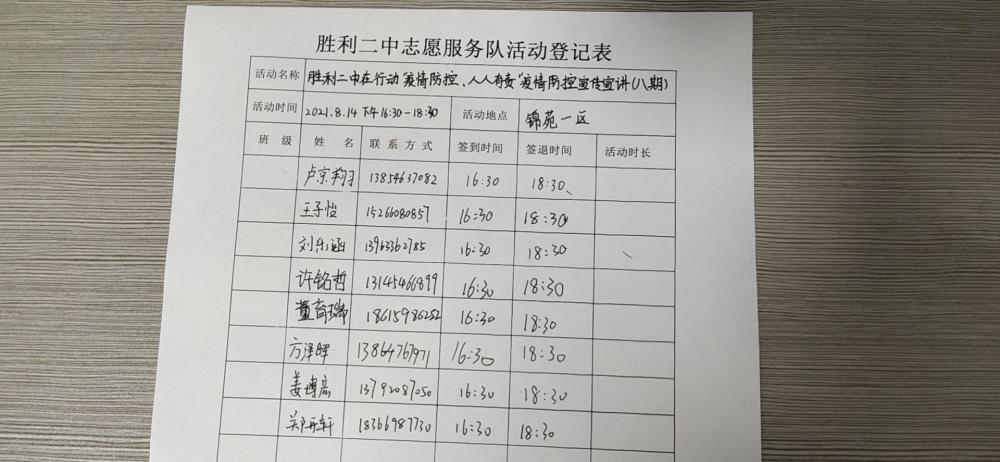 胜利二中志愿服务队活动登记表
活动名称 胜利二中在行动"疫情防控、人人有责"疫情防控宣传宣讲(八期)
活动时间 2021.8.14 下午16:30-18:30 活动地点 锦苑一区
班 级 姓 名 联系方式 签到时间 签退时间 活动时长
卢京翔 13854637082 16:30 18:30、
王子怡 15266080857 16:30 18:30
刘乐涵 13963362785 16:30 18:30
许铭哲 13145466899 16:30 18:30
董育瑞 18615986252 16:30 18:30
方泽晖 13864767971 16:30 18:30
姜博宸 13792087050 16:30 18:30
郑开轩 18366987730 16:30 18:30